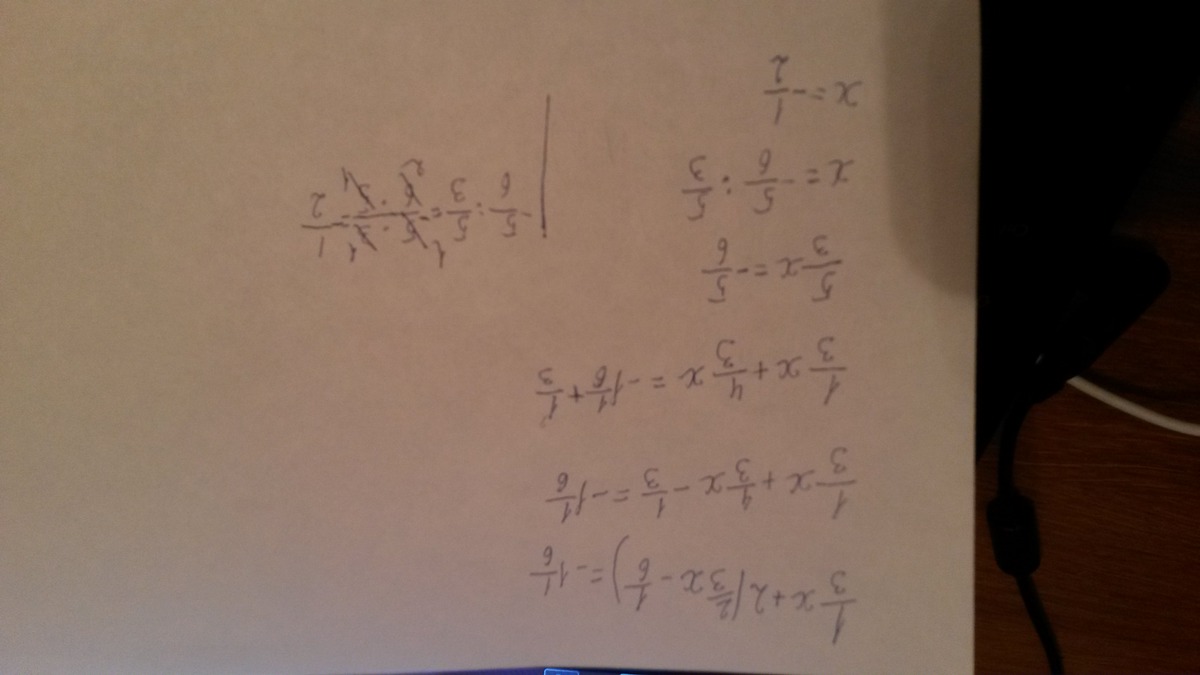 1/3 x + 2(2/3 x - 1/6) = -1 1/6
1/3 x + 4/3 x - 1/3 = -1 1/6
1/3 x + 4/3 x = -1 1/6 + 1/3
5/3 x = - 5/6
x = - 5/6 : 5/3
x = - 1/2
- 5/6 : 5/3 = - 5 · 3 / 6 · 5 = - 1/2